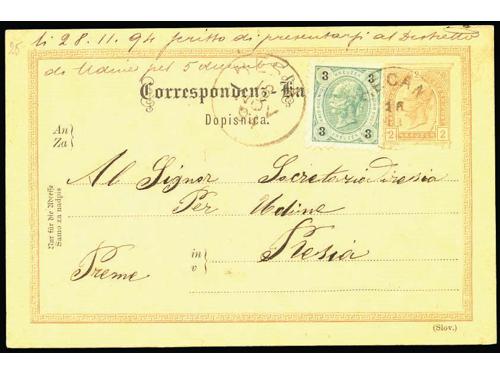 25
li 28. 11. 94 scritto di presentarsi al Distretto
di Udine pel 5 dicembre
Correspondenz-Ka
Dopisnica.
3 KREUZER 3
3 3
CAN
2 KREUZER 2
An
Za
Al Signor Secretario Resia
Per Udine
in
v
Resia
Preme
Nur für die Adresse
Samo za nadpis
(Slov.)